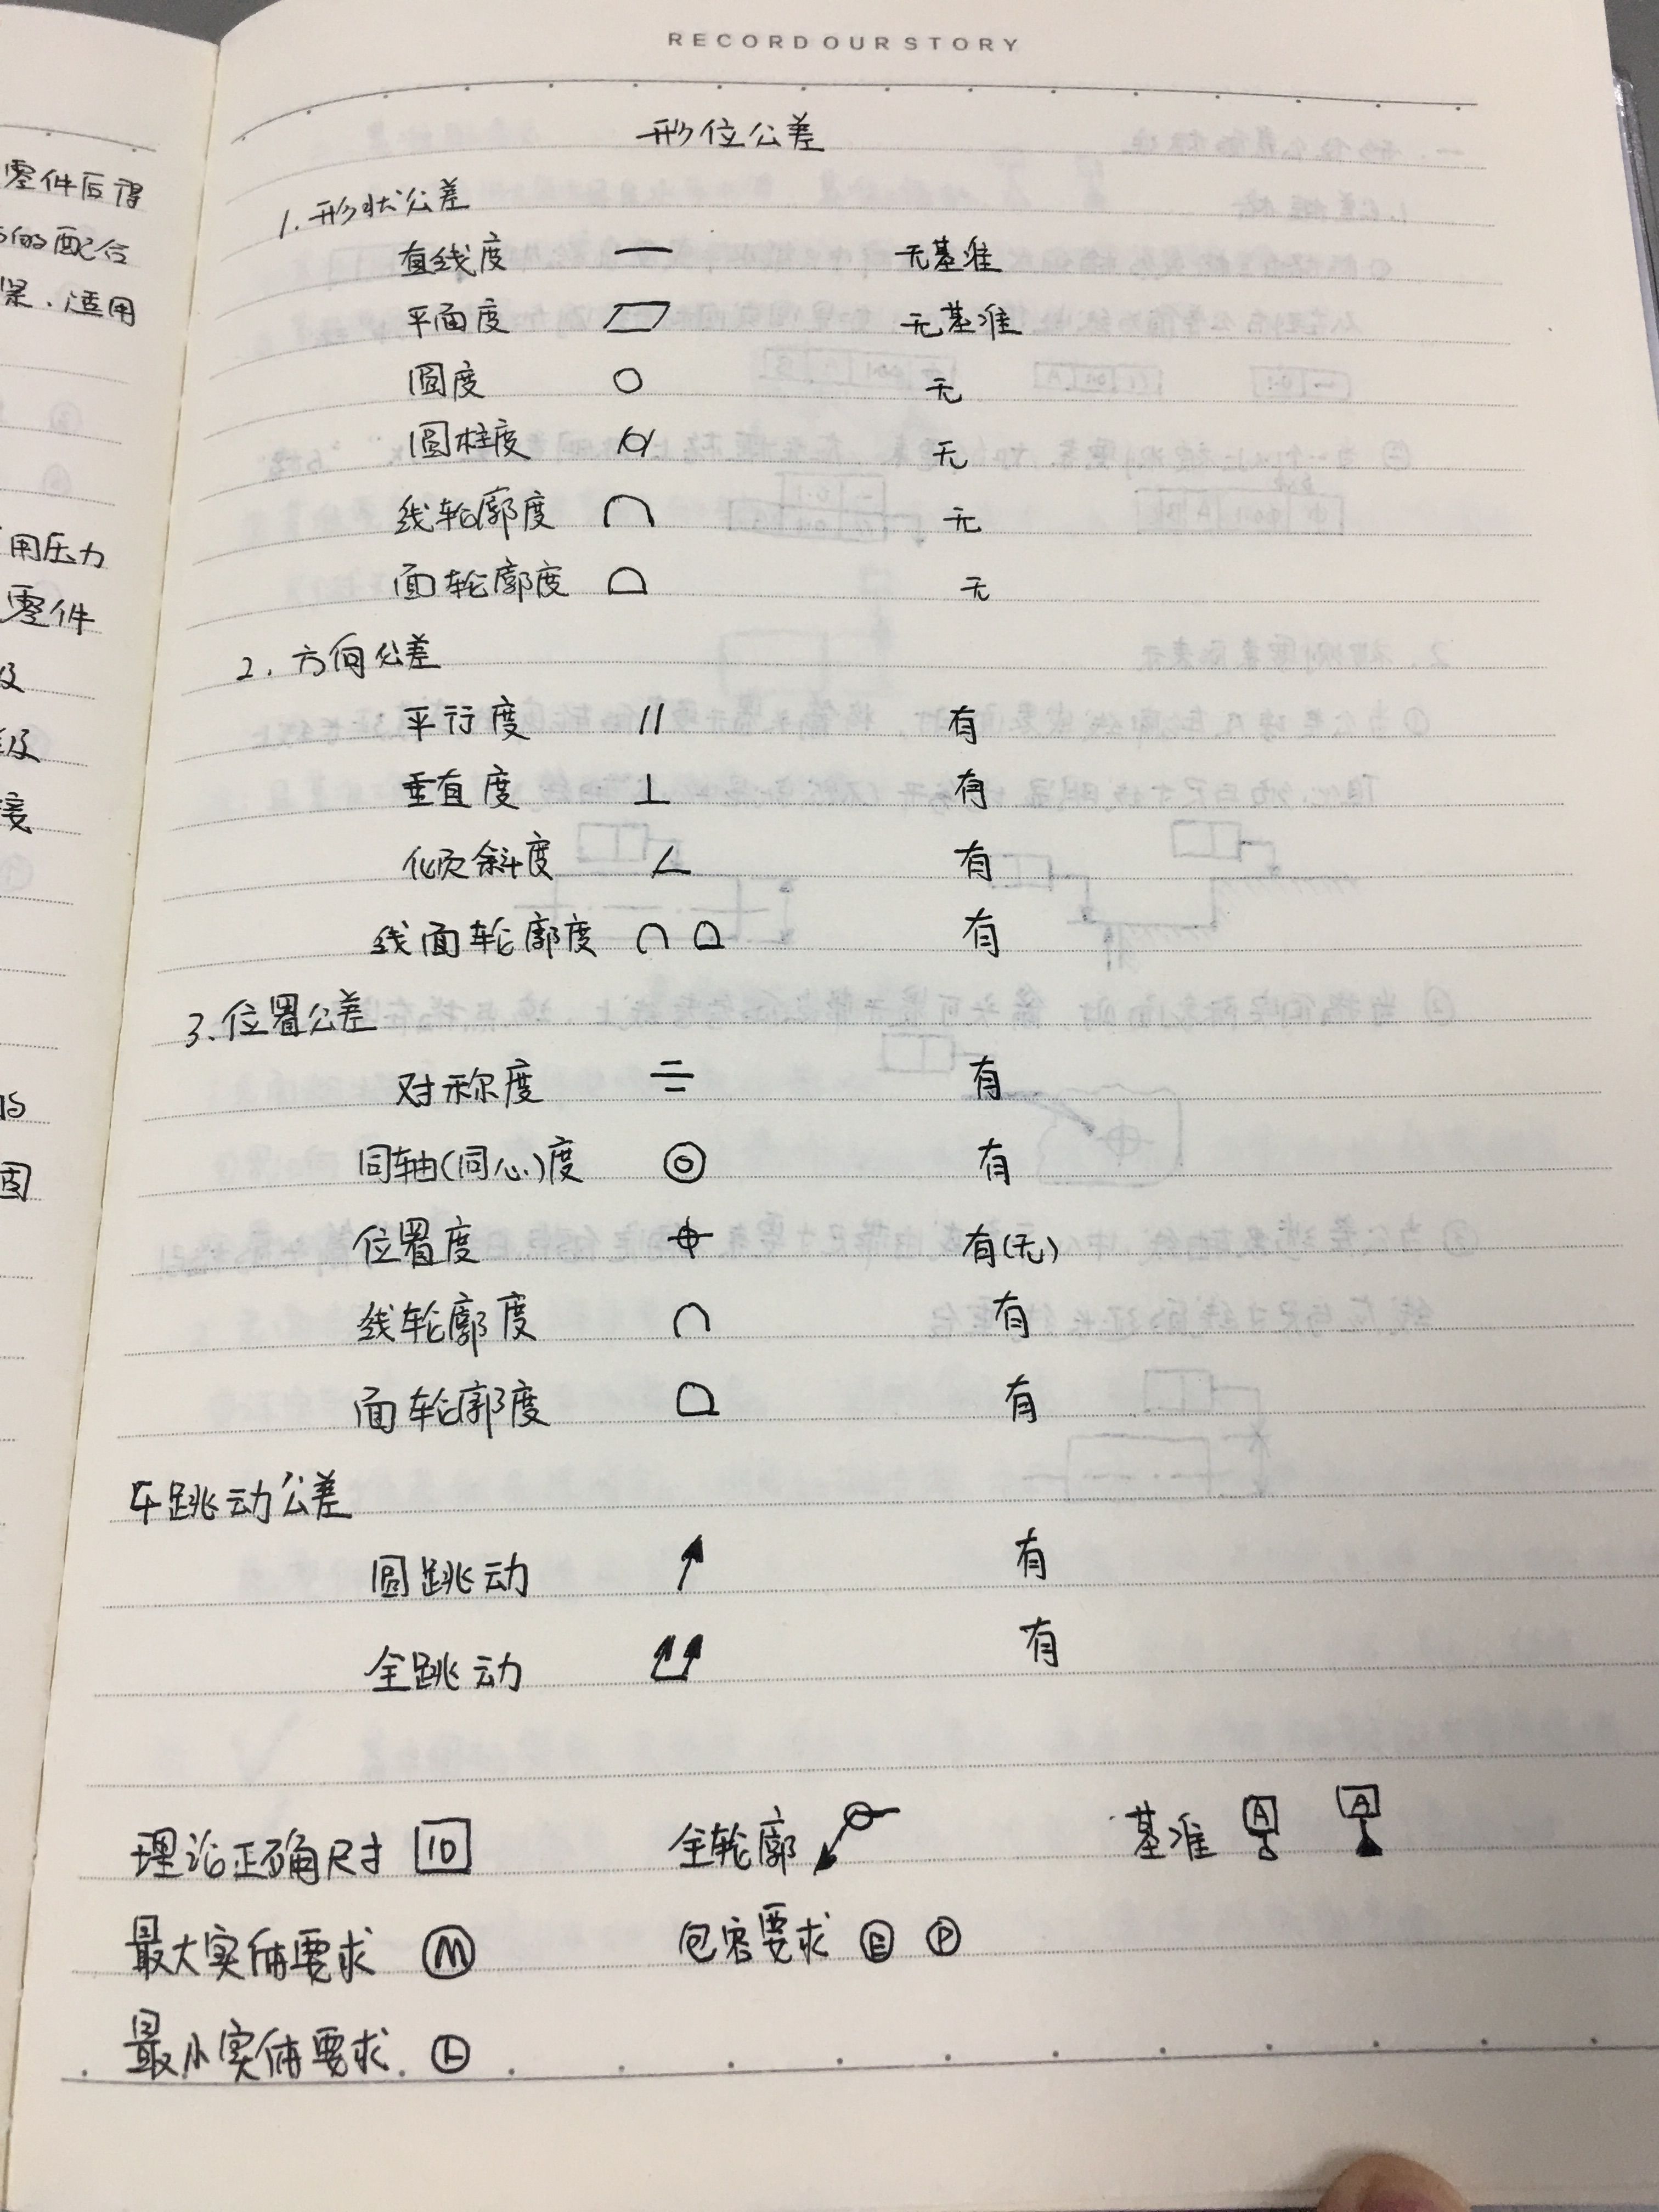 RECORD OUR STORY
形位公差
1. 形状公差
直线度 — 无基准
平面度 ▱ 无基准
圆度 ○ 无
圆柱度 ⌭ 无
线轮廓度 ⌒ 无
面轮廓度 ⌓ 无
2. 方向公差
平行度 // 有
垂直度 ⊥ 有
倾斜度 ∠ 有
线面轮廓度 ⌒ ⌓ 有
3. 位置公差
对称度 ⌯ 有
同轴(同心)度 ◎ 有
位置度 ⌖ 有(无)
线轮廓度 ⌒ 有
面轮廓度 ⌓ 有
4 跳动公差
圆跳动 ↗ 有
全跳动 ⌰ 有
理论正确尺寸 10 全轮廓 基准 A A
最大实体要求 Ⓜ 包容要求 Ⓔ Ⓟ
最小实体要求. Ⓛ
零件后得
的配合
适用
用压力
零件
级
接
的
固